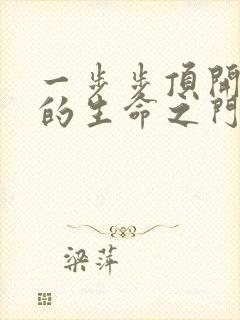 一步步頂開
的生命之門
梁萍